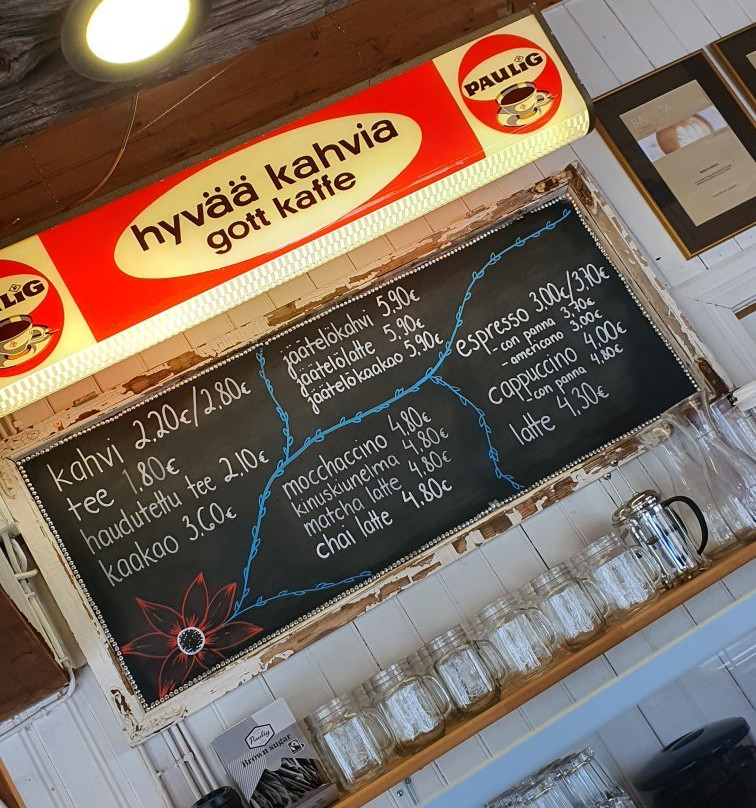 PAULIG
hyvää kahvia
gott kaffe
LIG
kahvi 2.20€/2.80€
tee 1.80€
haudutettu tee 2.10€
kaakao 3.60€
jäätelökahvi 5.90€
jäätelölatte 5.90€
jäätelökaakao 5.90€
mocchaccino 4.80€
kinuskiunelma 4.80€
matcha latte 4.80€
chai latte 4.80€
espresso 3.00€/3.70€
- con panna 3.70€
- americano 3.00€
cappuccino 4.00€
- con panna 4.80€
latte 4.30€
BARISTA
Paulig
Brown sugar